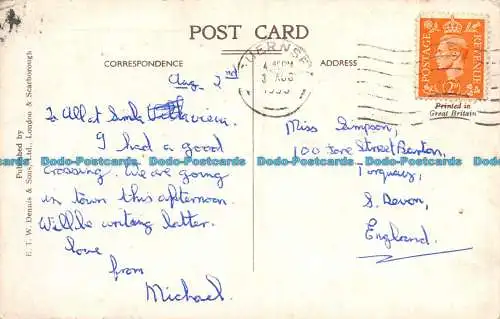 POST CARD
CORRESPONDENCE
ADDRESS
Aug 2nd
GUERNSEY
3 AUG
POSTAGE
REVENUE
Printed in
Great Britain
Published by
E. T. W. Dennis & Sons, Ltd., London & Scarborough
To All at
I had a good
crossing. We are going
in town this afternoon.
Will be writing later.
love
from
Michael.
Miss Simpson,
100 Fore Street Barton,
Torquay,
S. Devon,
England.
Dodo-Postcards Dodo-Postcards Dodo-Postcards Dodo-Postcards
Dodo-Postcards Dodo-Postcards Dodo-Postcards Dodo-Postcards